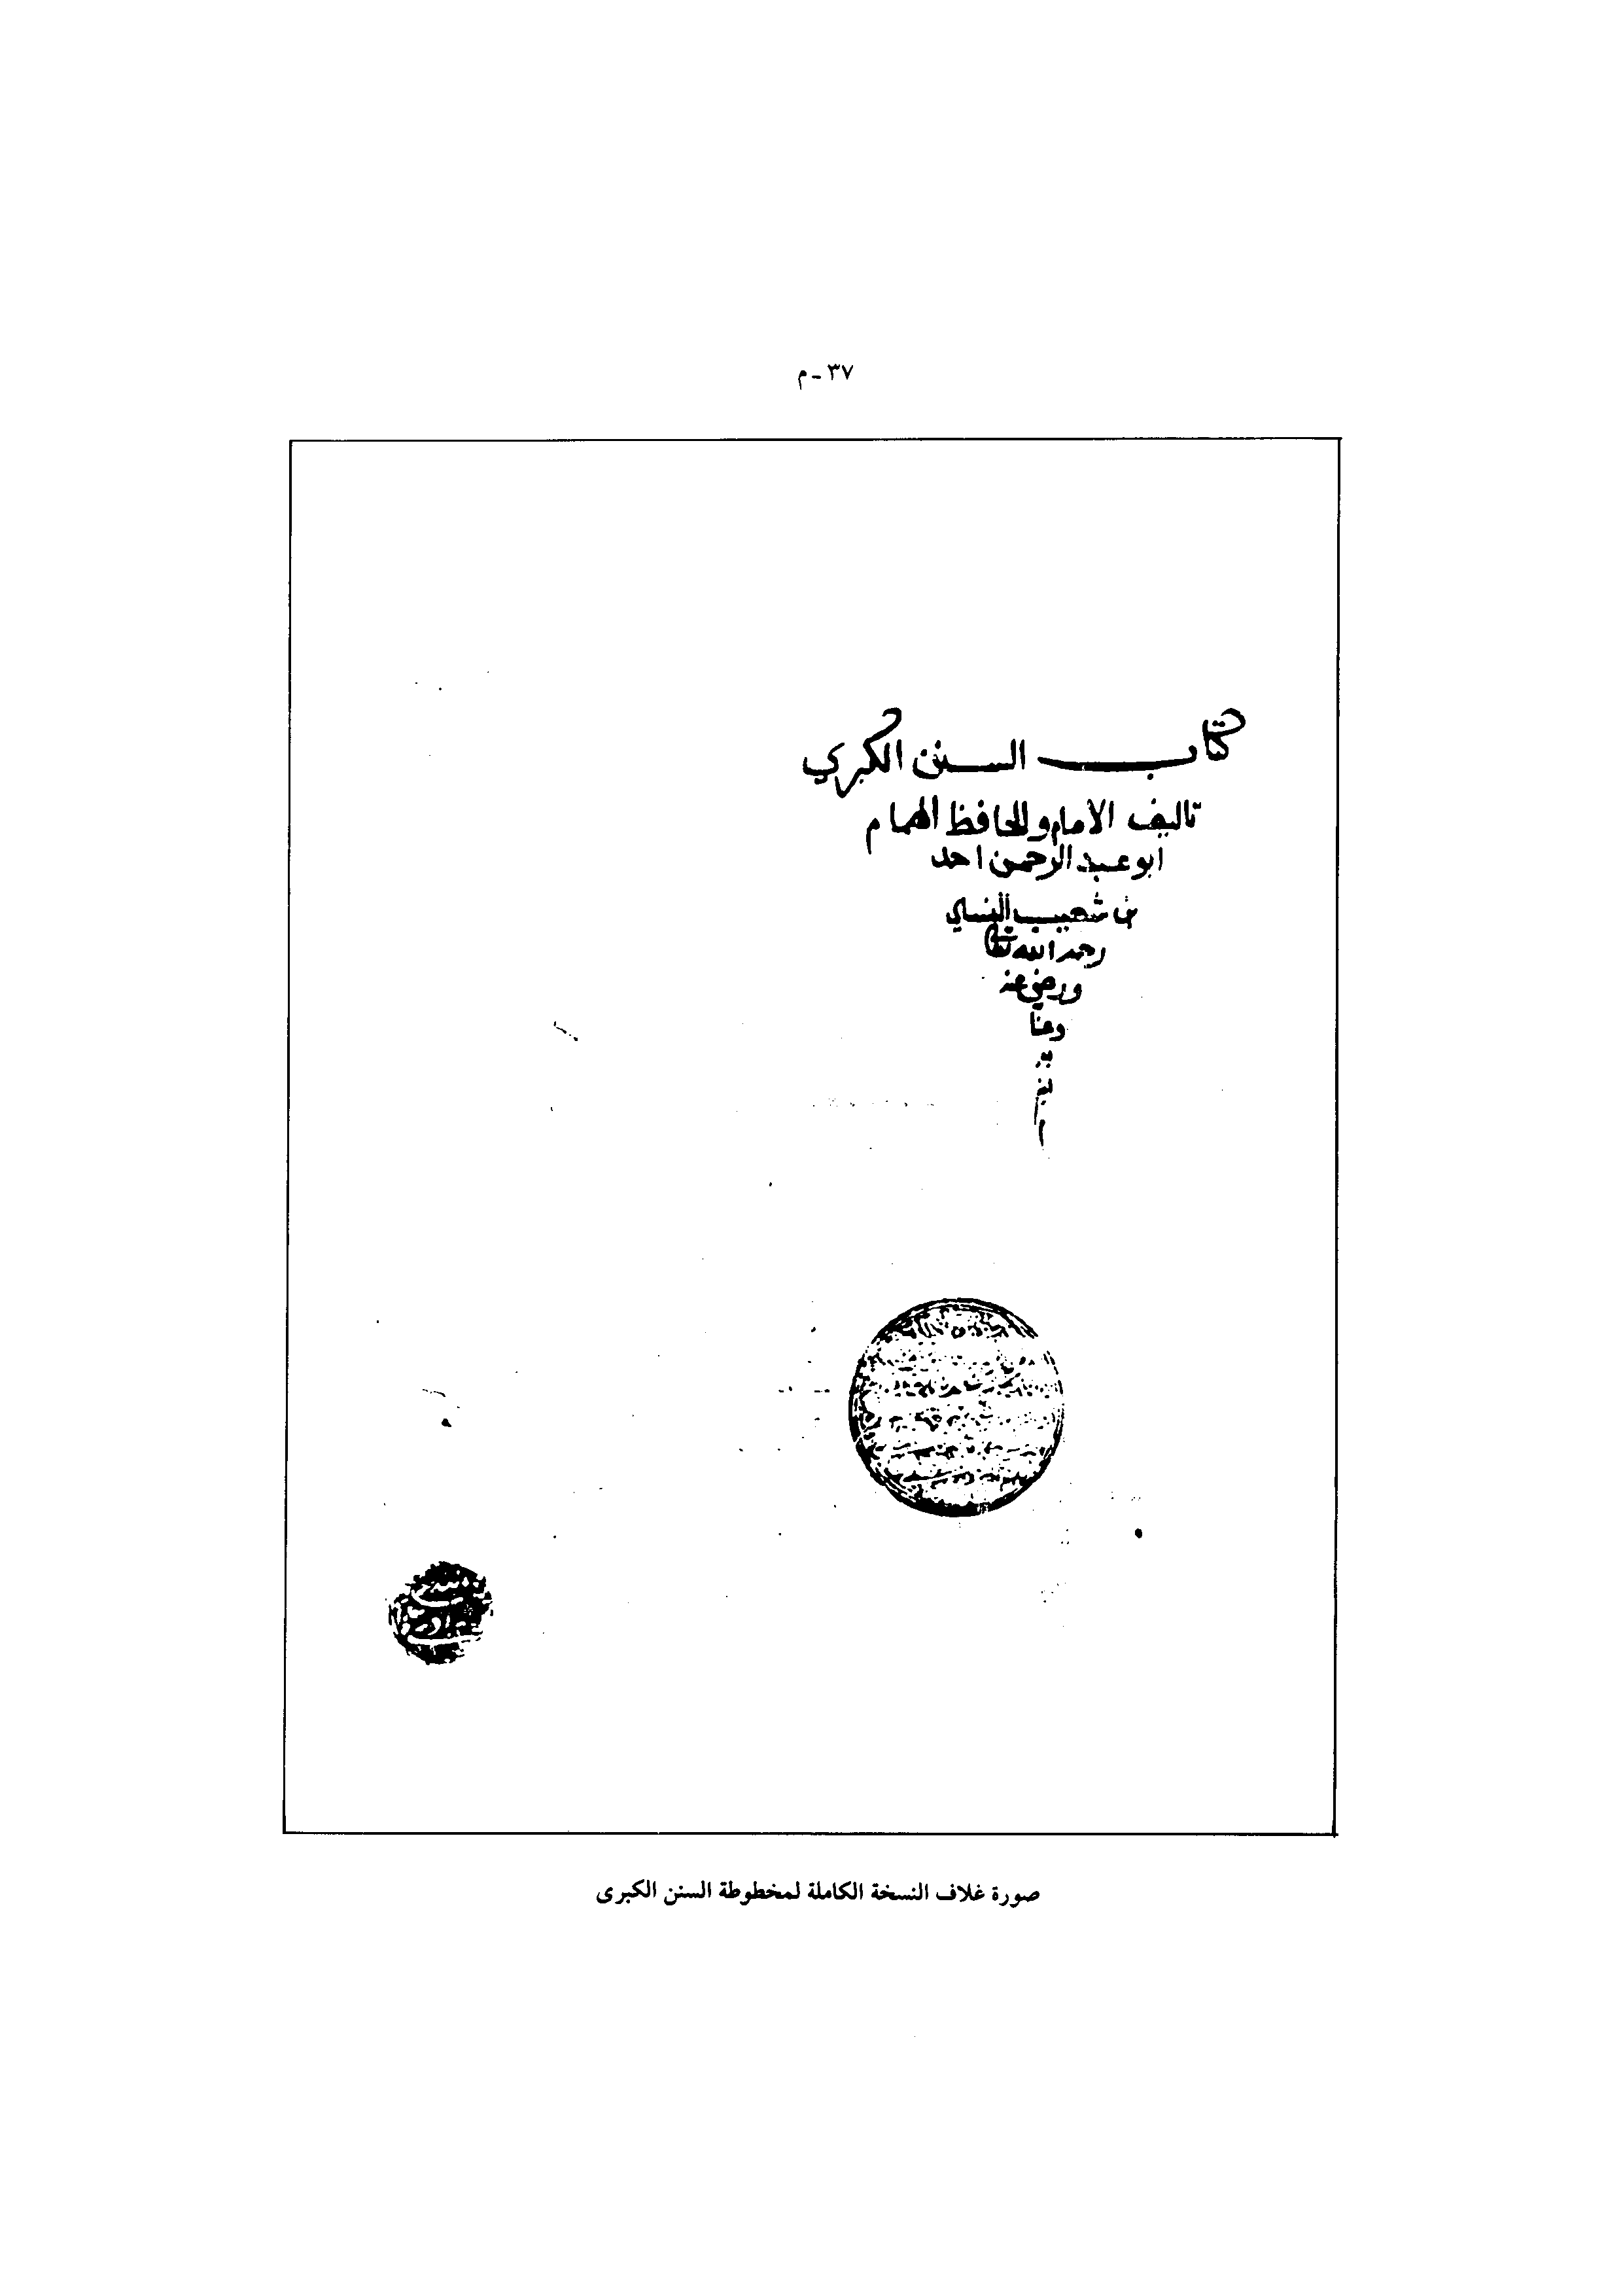 ٣٧ - م
كتاب السنن الكبري
تاليف الامام والحافظ الهمام
ابو عبد الرحمن احمد
بن شعيب النساي
رحمه الله تعالى
ورضي عنه
وعنا
صورة غلاف النسخة الكاملة لمخطوطة السنن الكبرى